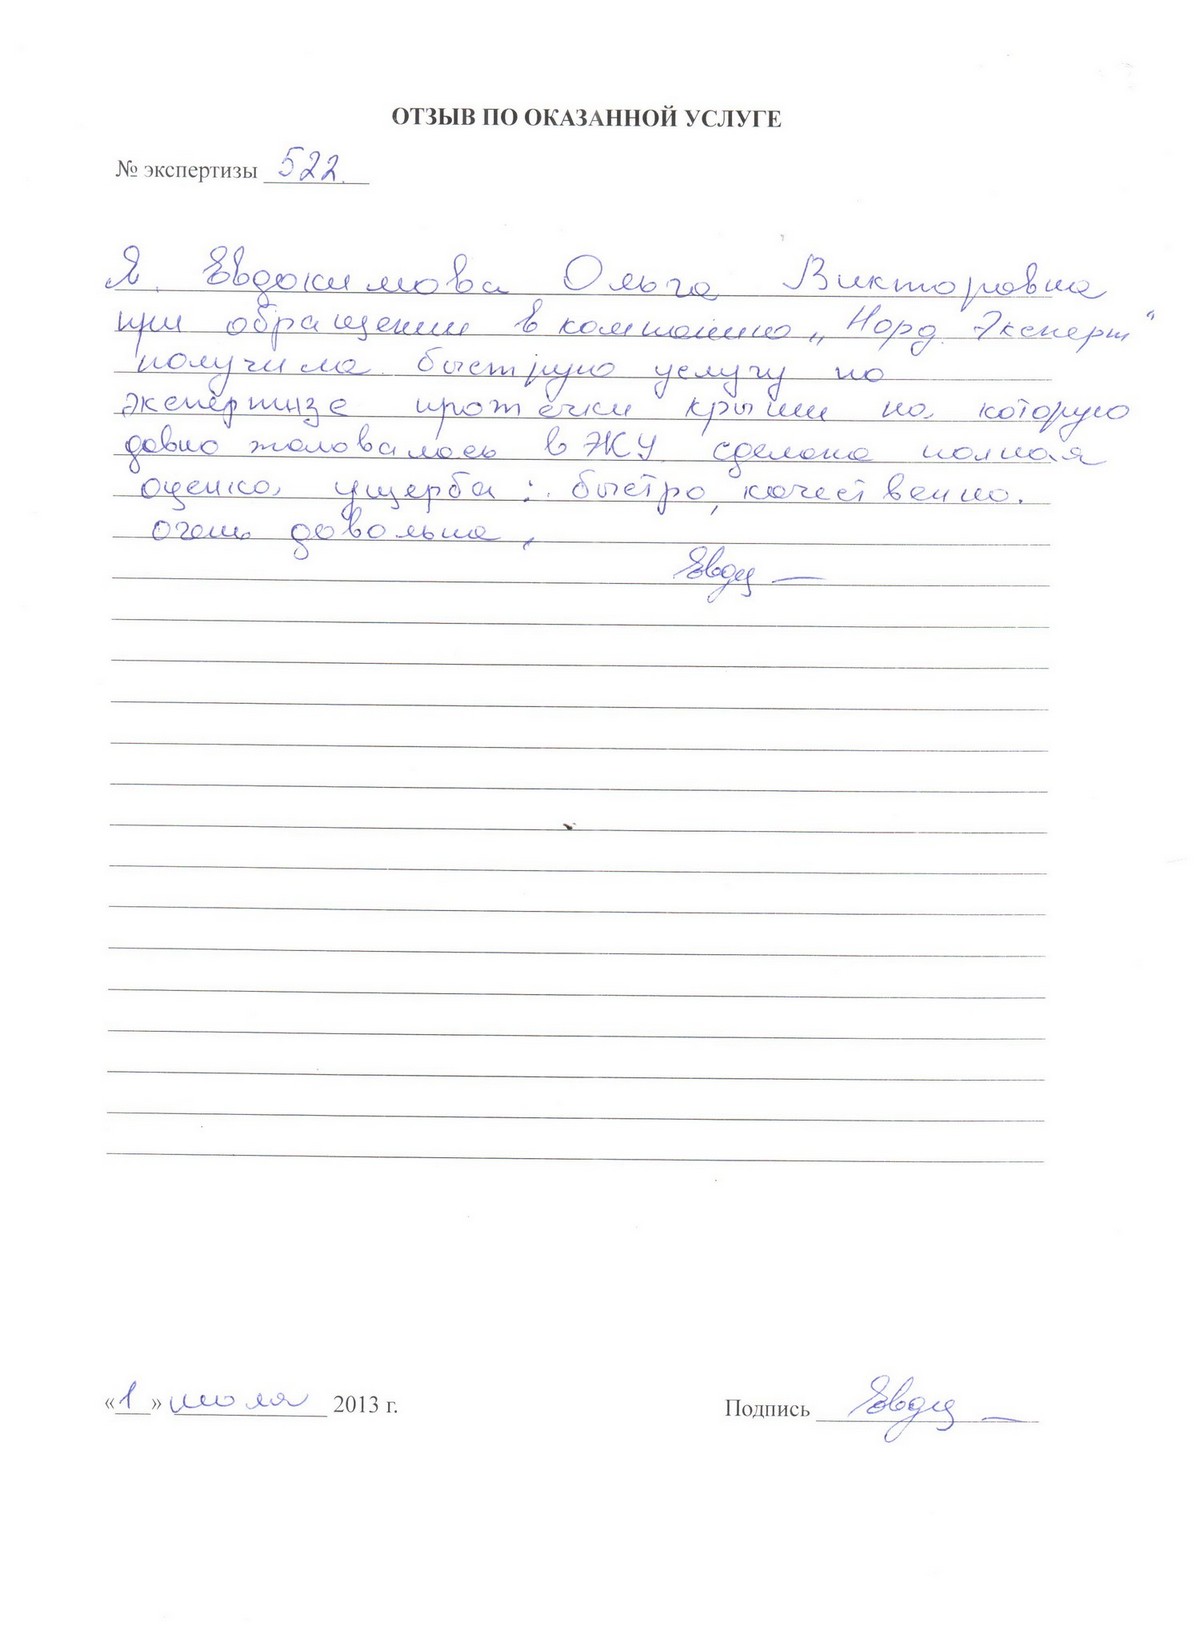 ОТЗЫВ ПО ОКАЗАННОЙ УСЛУГЕ
№ экспертизы 522.
Я, Евдокимова Ольга Викторовна
при обращении в компанию „Норд Эксперт“
получила быструю услугу по
экспертизе протечки крыши на которую
давно жаловалась в ЖУ сделана полная
оценка ущерба: быстро, качественно.
очень довольна,
«1» июля 2013 г. Подпись